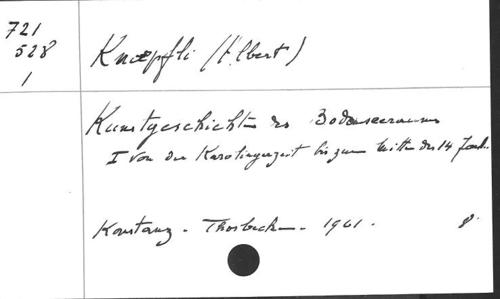 721
528
1
Knœpfli (Albert)
Kunstgeschichte des Bodenseeraumes
I Von der Karolingerzeit bis zum Mitte des 14 Jahr.
Konstanz - Thorbecke - 1961. 8°